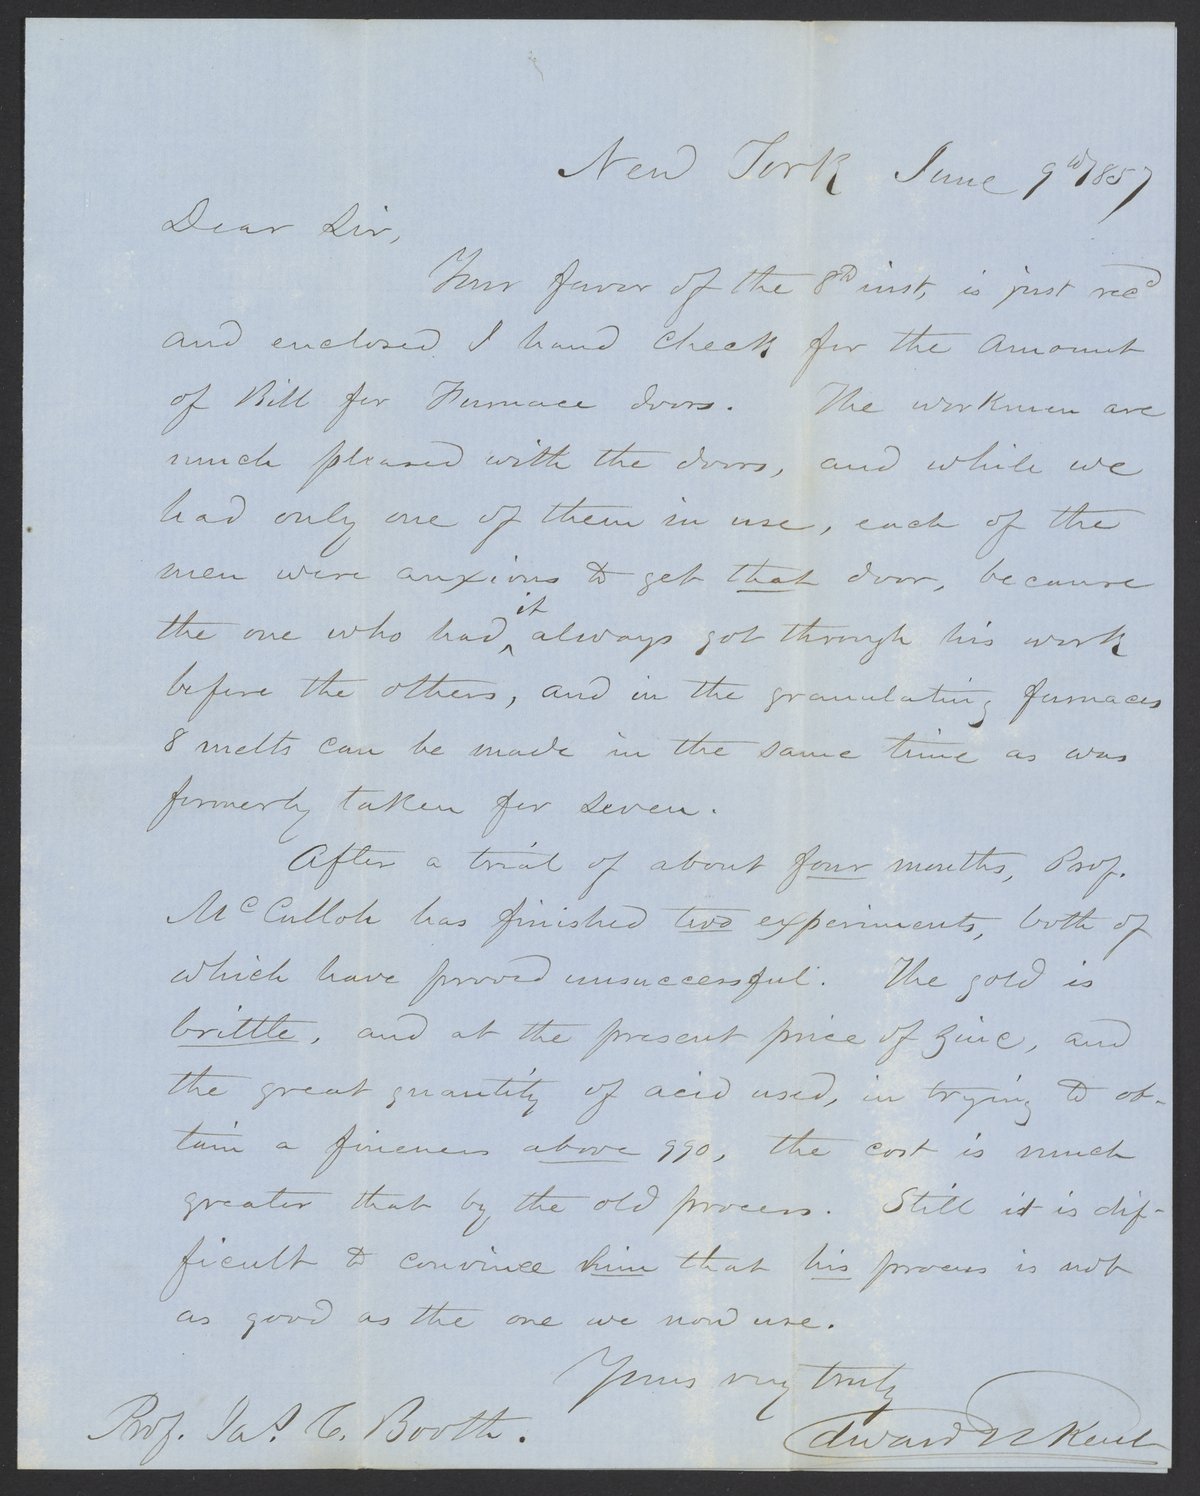 New York June 9th 1857
Dear Sir,
Your favor of the 8th inst, is just recd
and enclosed I hand check for the amount
of Bill for Furnace doors. The workmen are
much pleased with the doors, and while we
had only one of them in use, each of the
men were anxious to get that door, because
the one who had it always got through his work
before the others, and in the granulating furnaces
8 melts can be made in the same time as was
formerly taken for seven.
After a trial of about four months, Prof.
McCulloh has finished two experiments, both of
which have proved unsuccessful. The gold is
brittle, and at the present price of zinc, and
the great quantity of acid used, in trying to ob-
tain a fineness above 990, the cost is much
greater that by the old process. Still it is dif-
ficult to convince him that his process is not
as good as the one we now use.
Yours very truly
Edward N Kent
Prof. Jas. C. Booth.